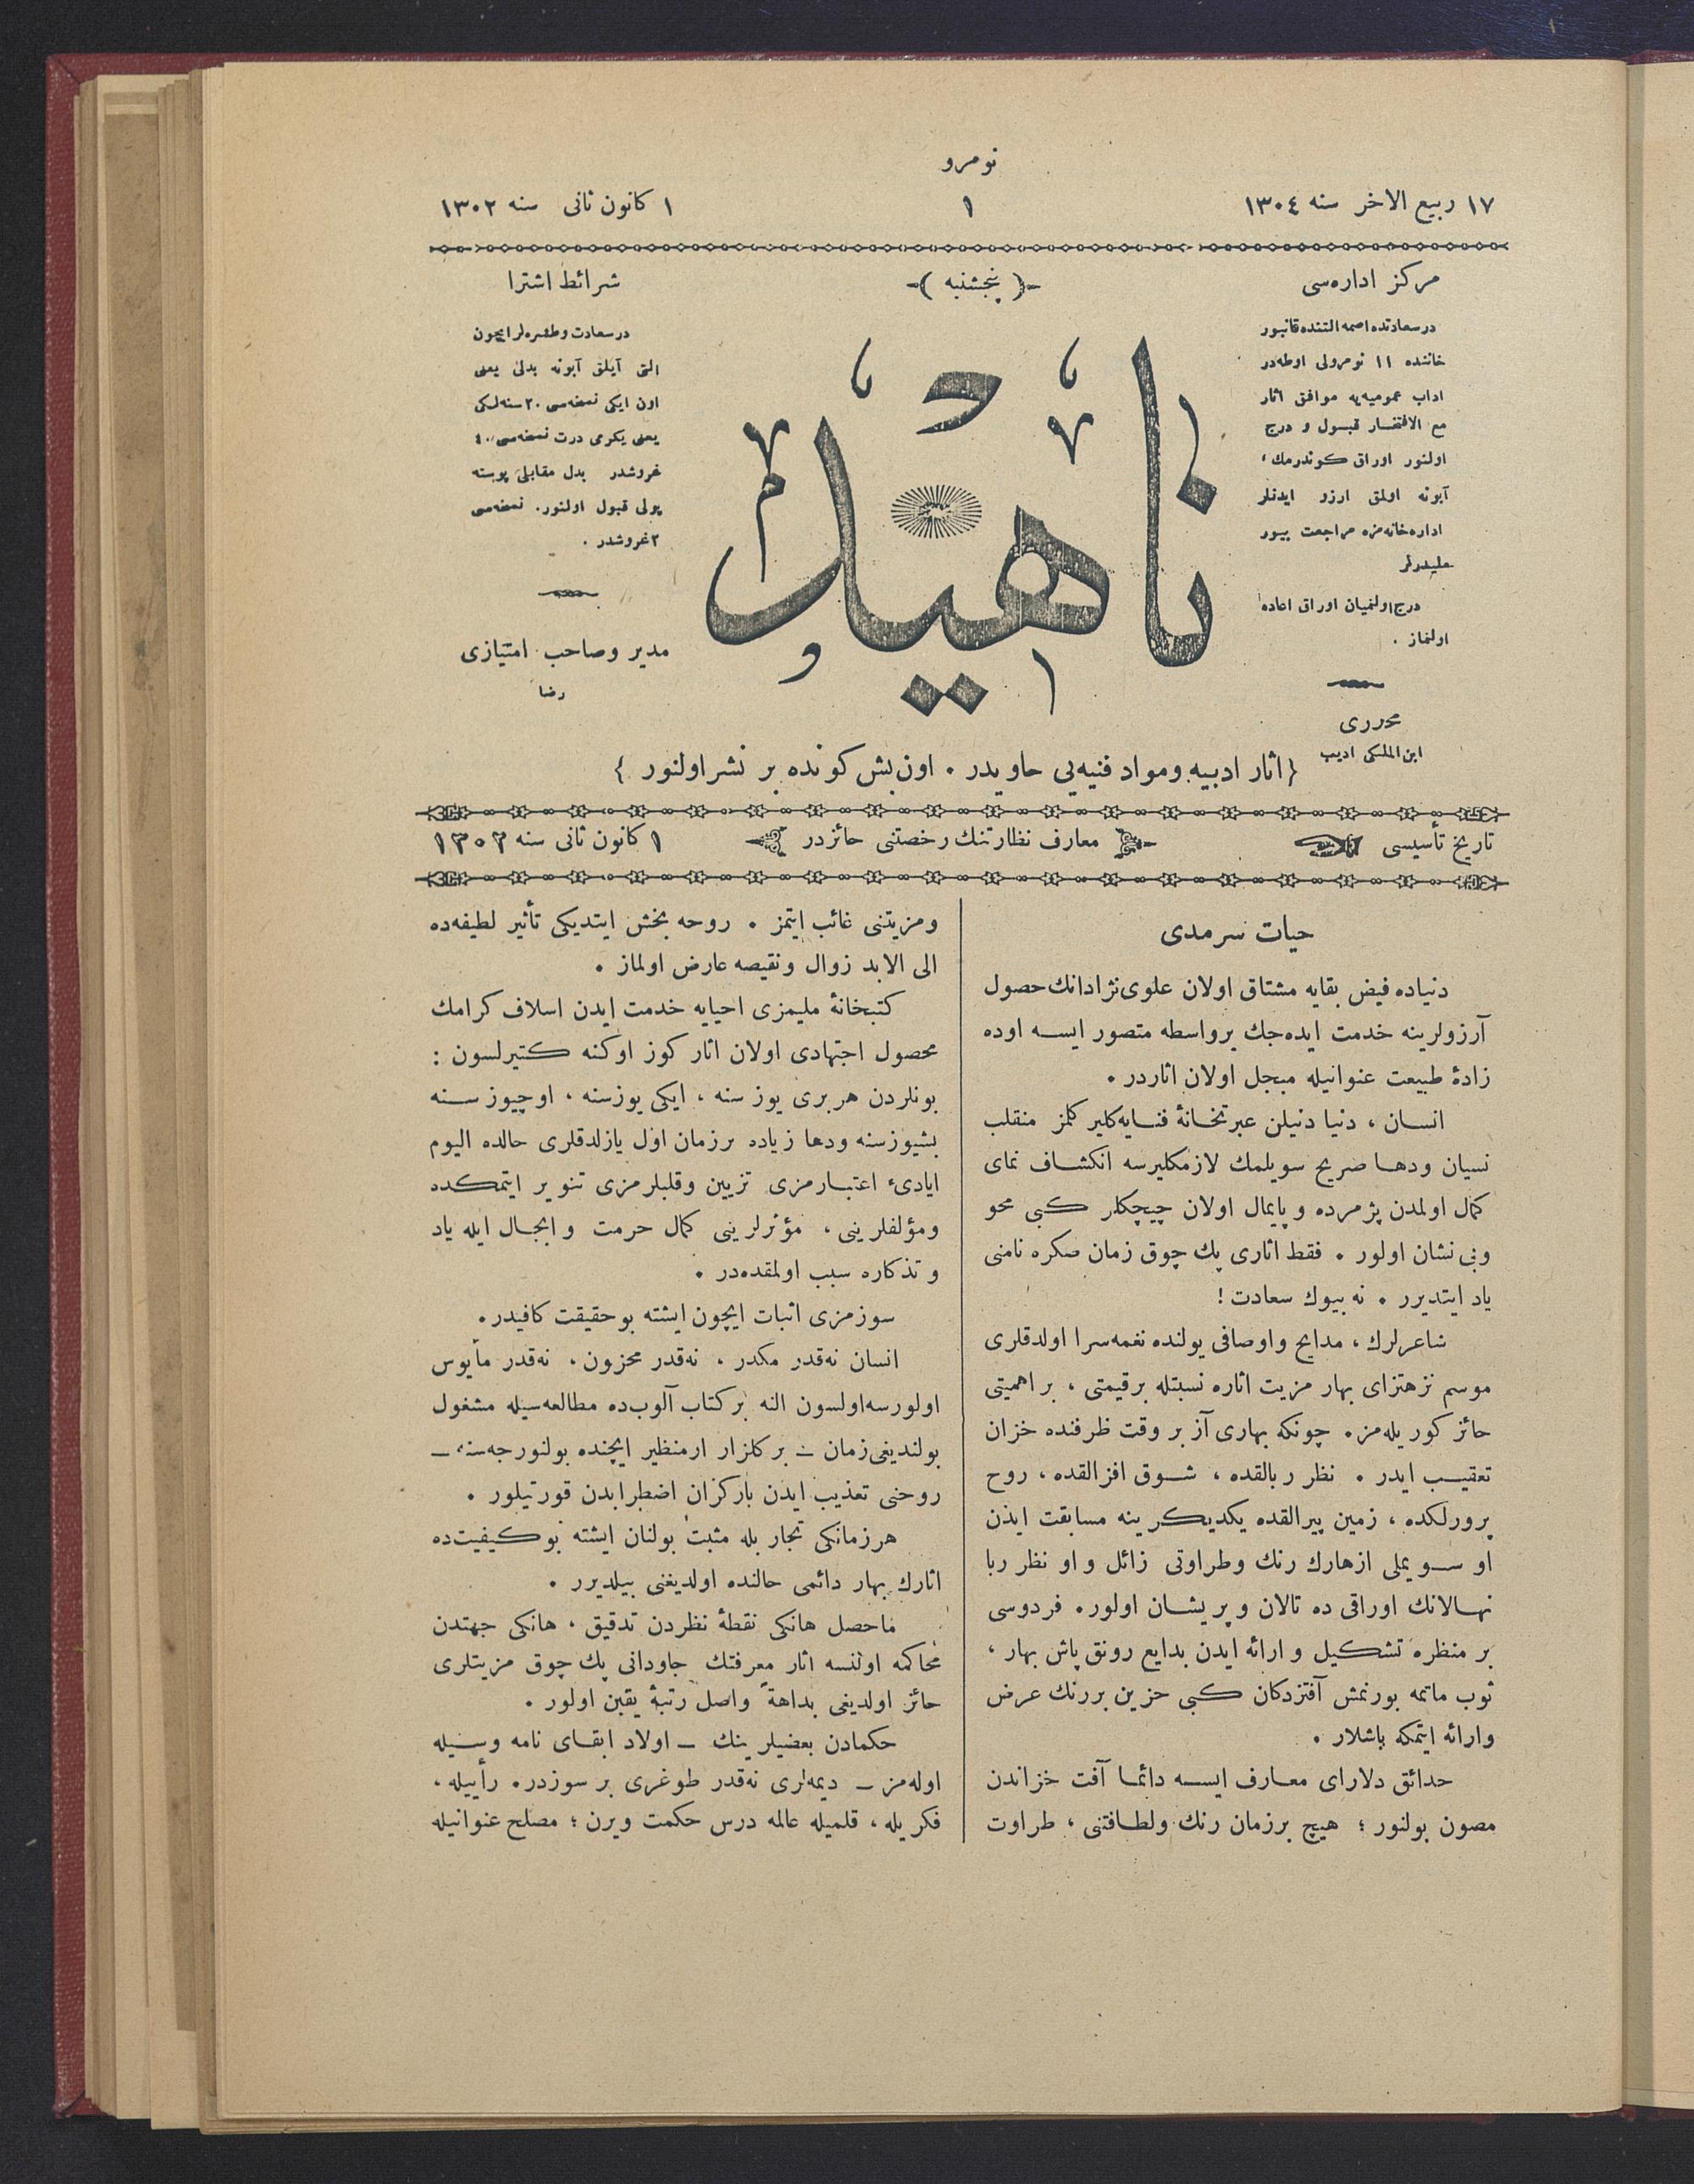 نومرو
١٧ ربيع الاخر سنه ١٣٠٤
١
١ كانون ثانی سنه ١٣٠٢
مركز اداره‌سی
درسعادتده اصمه التنده قانبور
خاننده ١١ نومرولی اوطه‌در
اداب عموميه‌يه موافق اثار
مع الافتخار قبول و درج
اولنور اوراق كوندرمك ،
آبونه اولمق ارزو ايدنلر
اداره‌خانه‌مزه مراجعت بيور
مليدرلر
درج اولنميان اوراق اعاده
اولنماز .
محرری
ابن الملكی اديب
﴿ پنجشنبه ﴾
ناهيد
شرائط اشترا
درسعادت وطشره‌لر ايچون
التی آيلق آبونه بدلی يعنی
اون ايكی نسخه‌سی ٢٠ سنه‌لكی
يعنی يكرمی درت نسخه‌سی ٤٠
غروشدر بدل مقابلی پوسته
پولی قبول اولنور. نسخه‌سی
٢ غروشدر .
مدير وصاحب امتيازی
رضا
{ اثار ادبيه ومواد فنيه‌يی حاويدر . اون بش كونده بر نشر اولنور }
تاريخ تأسيسی
معارف نظارتنك رخصتنی حائزدر
١ كانون ثانی سنه ١٣٠٢
حيات سرمدی
دنياده فيض بقايه مشتاق اولان علوی نژادانك حصول
آرزولرينه خدمت ايده‌جك برواسطه متصور ايسه اوده
زادۀ طبيعت عنوانيله مبجل اولان اثاردر .
انسان ، دنيا دنيلن عبرتخانۀ فنايه كلير كلمز منقلب
نسيان ودها صريح سويلمك لازمكليرسه انكشاف نمای
كمال اولمدن پژمرده و پايمال اولان چيچكلر كبی محو
وبی نشان اولور . فقط اثاری پك چوق زمان صكره نامنی
ياد ايتديرر . نه بيوك سعادت !
شاعرلرك ، مدايح واوصافی يولنده نغمه‌سرا اولدقلری
موسم نزهتزای بهار مزيت اثاره نسبتله برقيمتی ، بر اهميتی
حائز كوريله‌مز. چونكه بهاری آز بر وقت ظرفنده خزان
تعقيب ايدر . نظر ربالقده ، شوق افزالقده ، روح
پرورلكده ، زمين پيرالقده يكديكرينه مسابقت ايدن
او سويملی ازهارك رنك وطراوتی زائل و او نظر ربا
نهالانك اوراقی ده تالان و پريشان اولور. فردوسی
بر منظره تشكيل و ارائه ايدن بدايع رونق پاش بهار ،
ثوب ماتمه بورنمش آفتزدكان كبی حزين بررنك عرض
وارائه ايتمكه باشلار .
حدائق دلارای معارف ايسه دائما آفت خزاندن
مصون بولنور ؛ هيچ برزمان رنك ولطافتنی ، طراوت
ومزيتنی غائب ايتمز . روحه بخش ايتديكی تأثير لطيفه‌ده
الی الابد زوال ونقيصه عارض اولماز .
كتبخانۀ مليمزی احيايه خدمت ايدن اسلاف كرامك
محصول اجتهادی اولان اثار كوز اوكنه كتيرلسون :
بونلردن هربری يوز سنه ، ايكی يوزسنه ، اوچيوز سنه
بشيوزسنه ودها زياده برزمان اول يازلدقلری حالده اليوم
ايادیٔ اعتبارمزی تزيين وقلبلرمزی تنوير ايتمكده
ومؤلفلرينی ، مؤثرلرينی كمال حرمت وابجال ايله ياد
و تذكاره سبب اولمقده‌در .
سوزمزی اثبات ايچون ايشته بو حقيقت كافيدر.
انسان نه‌قدر مكدر ، نه‌قدر محزون ، نه‌قدر مأيوس
اولورسه‌اولسون النه بر كتاب آلوب‌ده مطالعه‌سيله مشغول
بولنديغی زمان – بر كلزار ارمنظير ايچنده بولنورجه‌سنه –
روحنی تعذيب ايدن باركران اضطرابدن قورتيلور .
هرزمانكی تجاربله مثبت بولنان ايشته بو كيفيت‌ده
اثارك بهار دائمی حالنده اولديغنی بيلديرر .
ماحصل هانكی نقطۀ نظردن تدقيق ، هانكی جهتدن
محاكمه اولنسه اثار معرفتك جاودانی پك چوق مزيتلری
حائز اولديغی بداهةً واصل رتبۀ يقين اولور .
حكمادن بعضيلرينك – اولاد ابقای نامه وسيله
اوله‌مز – ديمه‌لری نه‌قدر طوغری بر سوزدر. رأييله ،
فكريله ، قلميله عالمه درس حكمت ويرن ؛ مصلح عنوانيله